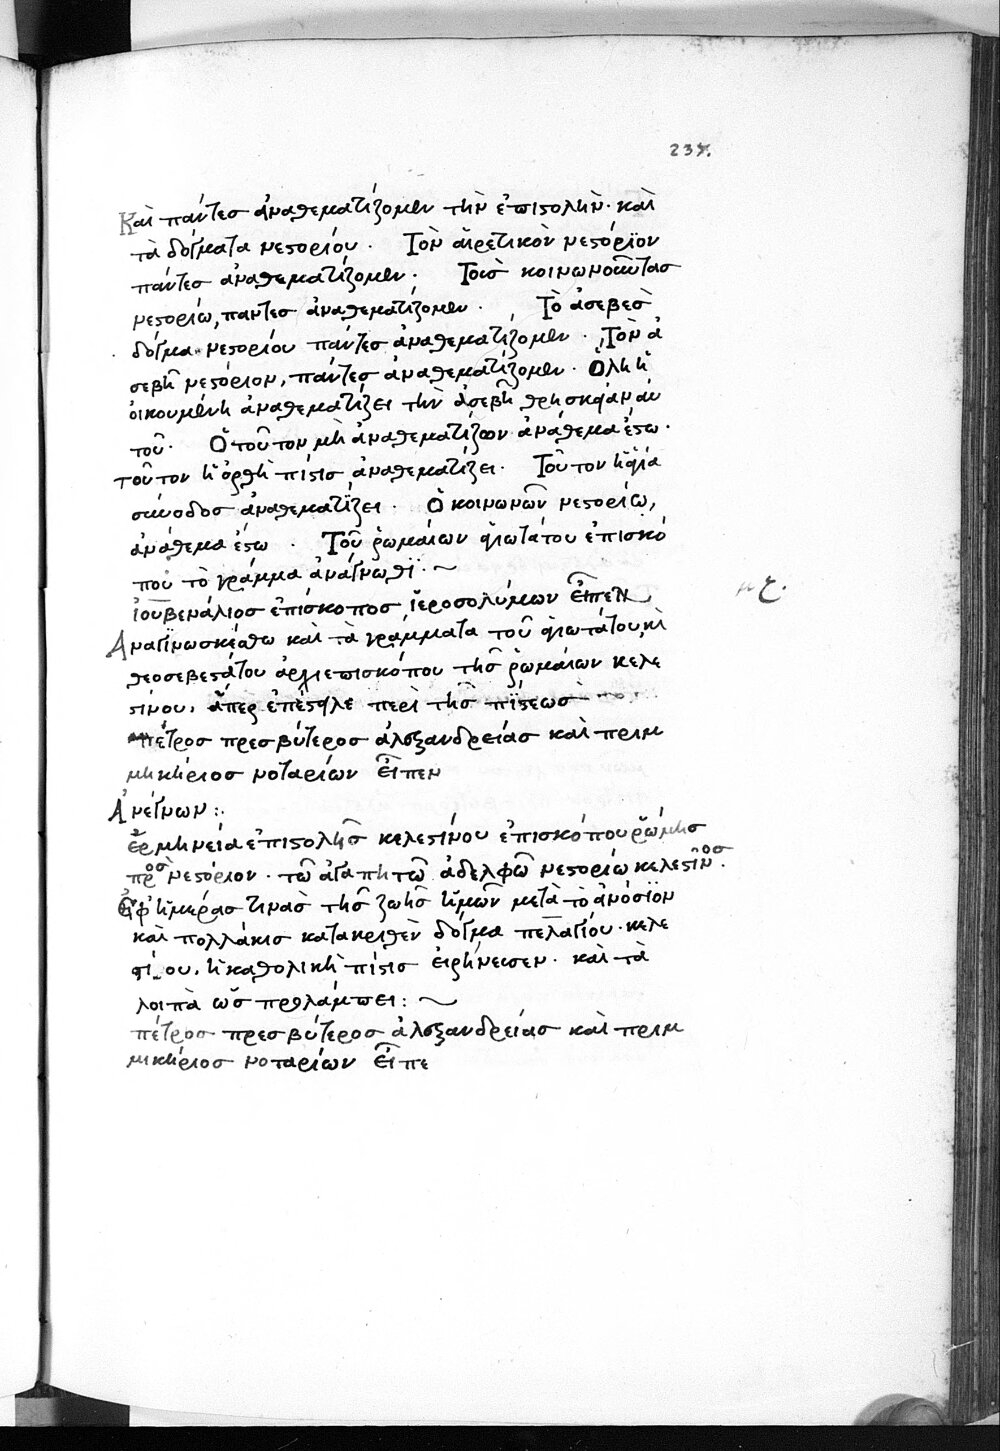 237.
Καὶ πάντεσ ἀναθεματίζομεν τὴν ἐπιστολὴν· καὶ
τὰ δόγματα νεστορίου. Τὸν αἱρετικὸν νεστόριον
πάντεσ ἀναθεματίζομεν. Τοισ κοινωνοῦντασ
νεστορίω, παντεσ ἀναθεματίζομεν. Τὸ ἀσεβεσ
δόγμα νεστορίου πάντεσ ἀναθεματίζομεν. Τὸν ἀ
σεβῆ νεστόριον, πάντεσ ἀναθεματίζομεν. Ὅλη ἡ
οἰκουμένη ἀναθεματίζει τὴν ἀσεβῆ θρησκείαν αὐ
τοῦ. Ὁ τοῦτον μὴ ἀναθεματίζων ἀνάθεμα ἔστω.
τοῦτον ἡ ὀρθὴ πίστισ ἀναθεματίζει. Τοῦτον ἡ ἁγία
σύνοδοσ ἀναθεματίζει. Ὁ κοινωνῶν νεστορίω,
ἀνάθεμα ἔστω. Τοῦ ῥωμαίων ἁγιωτάτου ἐπισκό
που τὸ γράμμα ἀναγνωθῖ.
ἰουβενάλιοσ ἐπίσκοποσ ἱεροσολύμων εἶπεν
Ἀναγινωσκέσθω καὶ τὰ γράμματα τοῦ ἁγιωτάτου, κὶ
θεοσεβεστάτου ἀρχιεπισκόπου τῆσ ῥωμαίων κελε
στίνου. ἅπερ ἐπέστειλε περὶ τῆσ πίστεωσ
πέτροσ πρεσβύτεροσ ἀλεξανδρείασ καὶ πριμ
μηκήριοσ νοταρίων εἶπεν
Ἀνέγνων:
ἑρμηνεία ἐπιστολῆσ κελεστίνου ἐπισκόπου ῥώμησ
πρὸσ νεστόριον. τῶ ἀγαπητῶ ἀδελφῶ νεστορίω κελεστῖνοσ.
Ἐφ ἡμέρασ τινασ τῆσ ζωῆσ ἡμῶν μετὰ τὸ ἀνόσϊον
καὶ πολλάκισ κατακριθὲν δόγμα πελαγίου. κελε
στί ου. ἡ καθολικὴ πίστισ εἰρήνευσεν. καὶ τὰ
λοιπὰ ὡσ προλάμπει:
πέτροσ πρεσβύτεροσ ἀλεξανδρείασ καὶ πριμ
μικήριοσ νοταρίων εἶπε